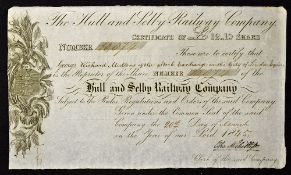 The Hull and Selby Railway Company
CERTIFICATE OF £12.10 SHARE
NUMBER
These are to certify that
George Richard of the Stock Exchange in the City of London
is the Proprietor of the Share NUMBER of the
Hull and Selby Railway Company
Subject to the Rules Regulations and Orders of the said Company
Given under the Common Seal of the said
Company the 20th Day of March
in the Year of our Lord 1845.
Clerk of the said Company